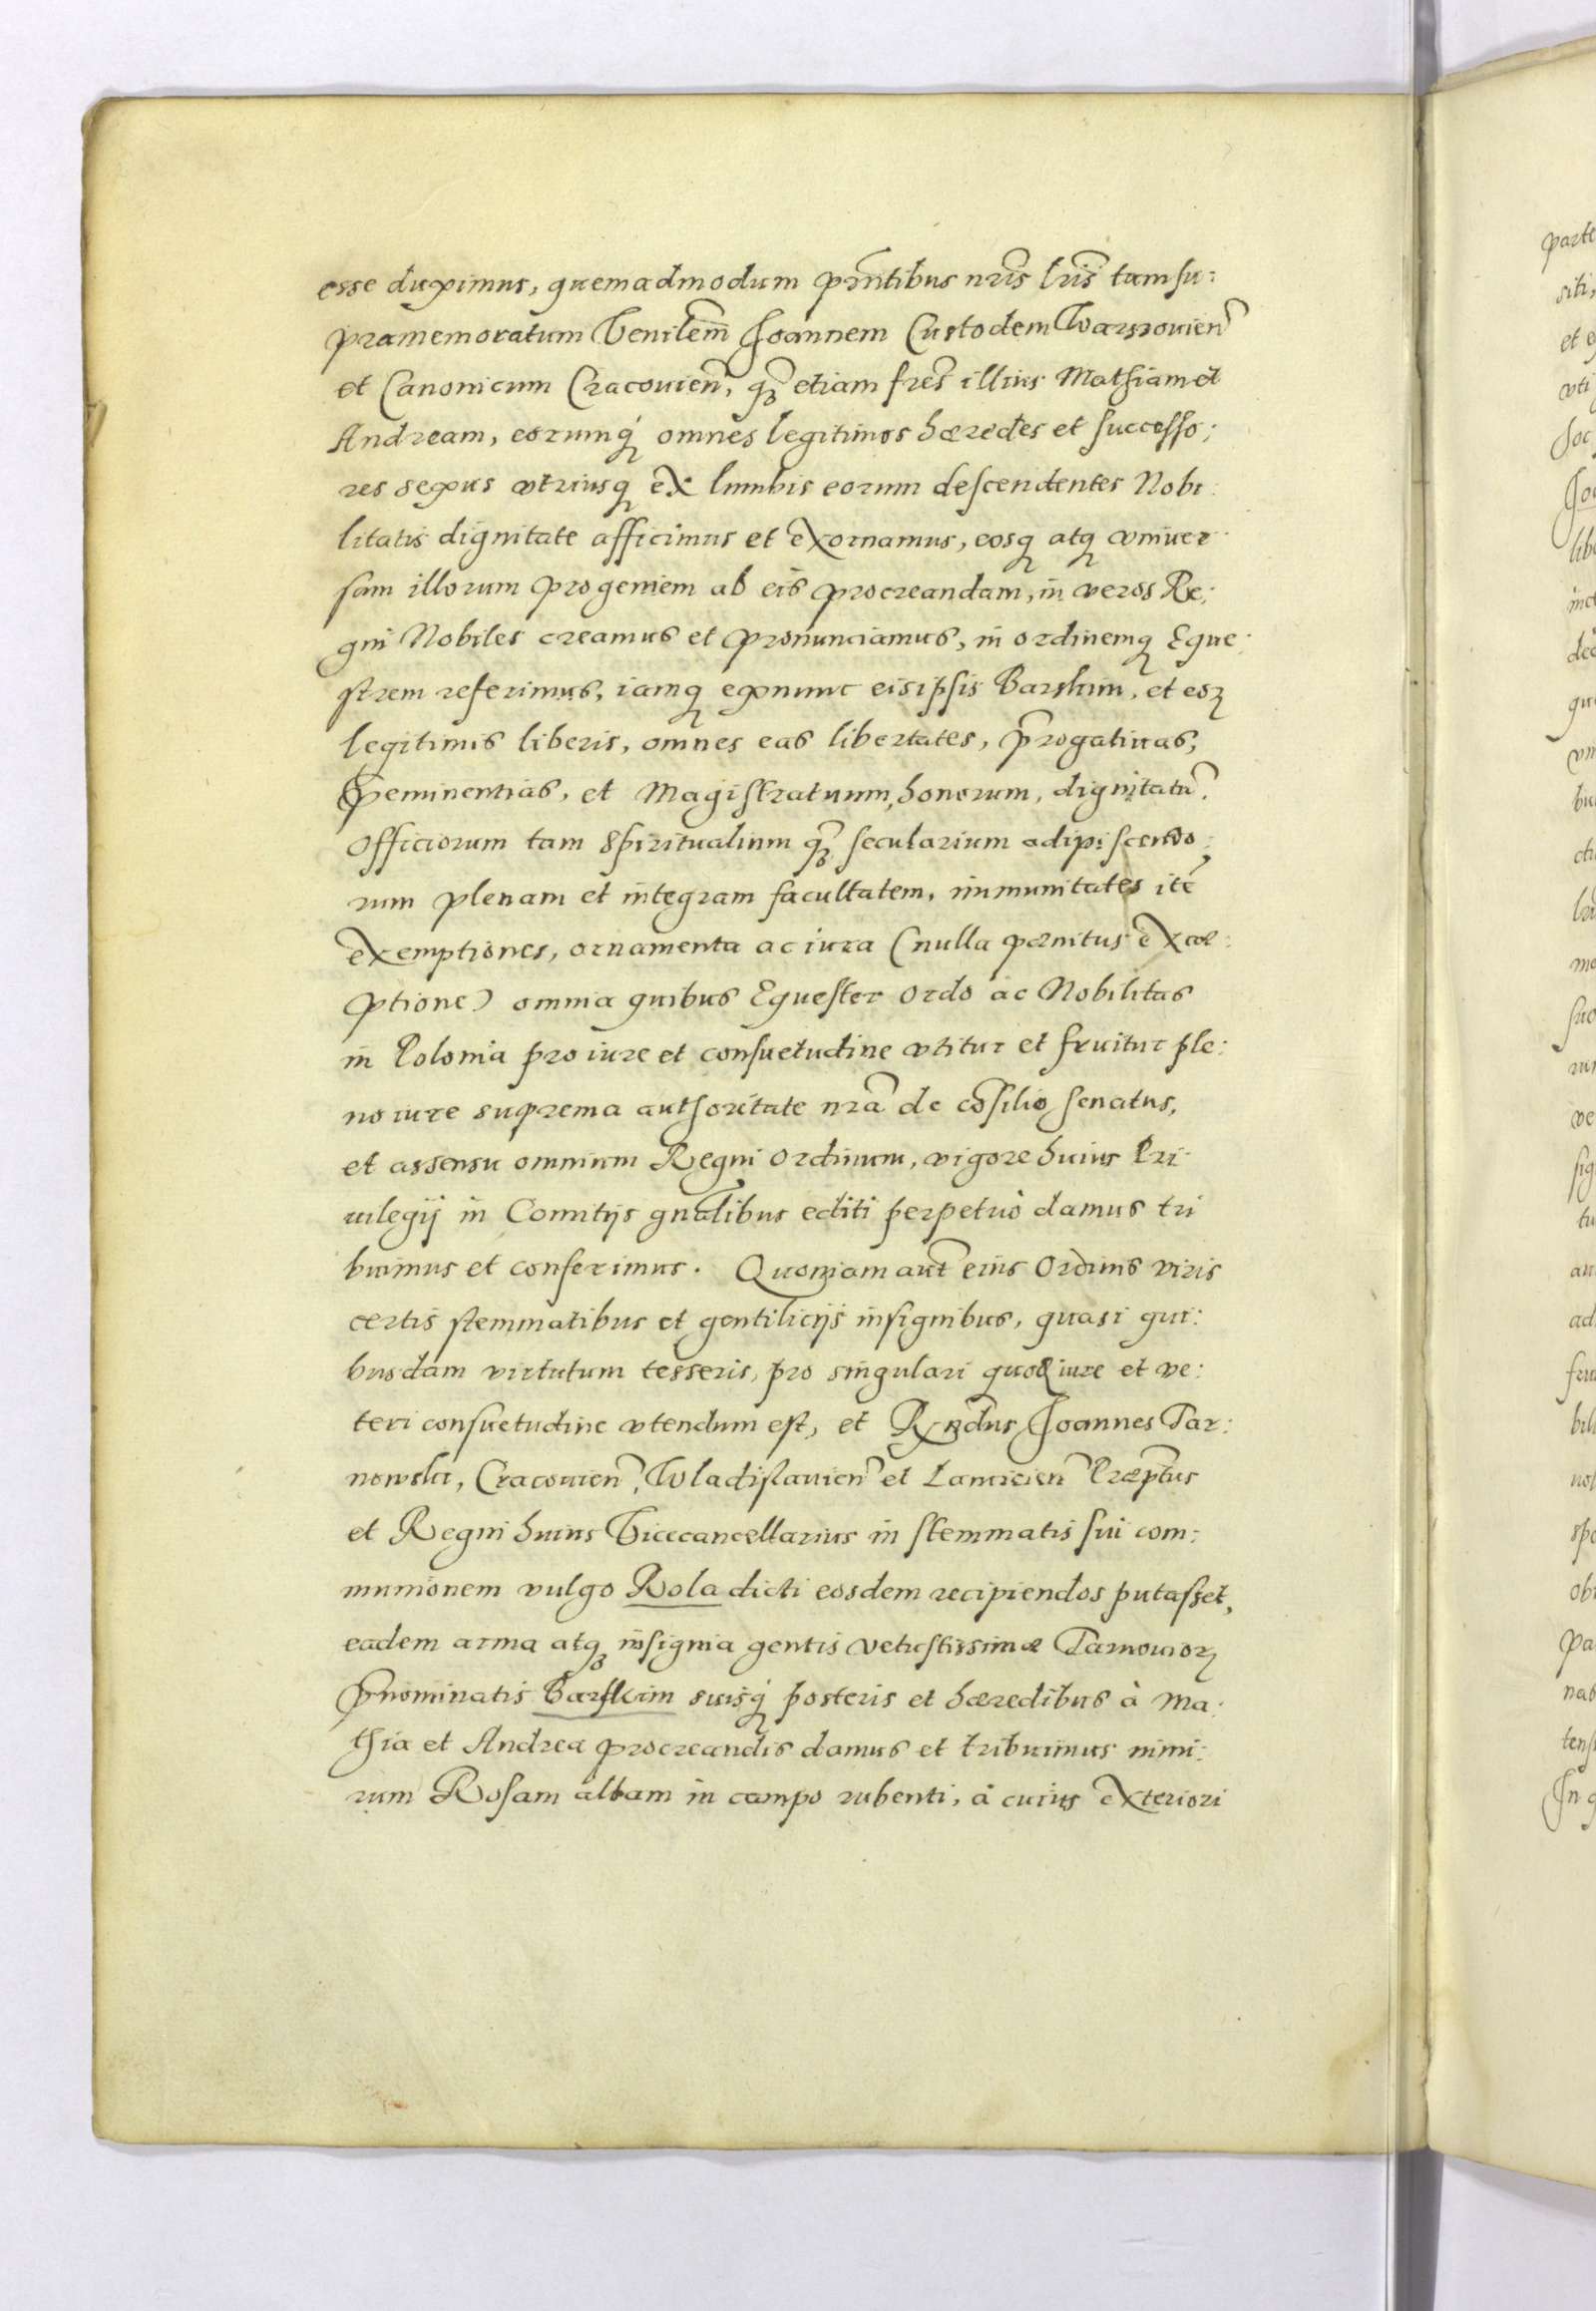 esse duximus, quemadmodum pñtibus nris̃ lris̃ tam su:
pramemoratum Venilem̃ Joannem Custodem Warssouien̄
et Canonicum Cracouien̄, qꝫ̃ etiam fres̃ illius Mathiam et
Andream, eorumq́ omnes legitimos hæredes et successo:
res sexus vtriusq ex lumbis eorum descendentes Nobi:
litatis dignitate afficimus et exornamus, eosq atq vniuer
sam illorum progeniem ab eis procreandam, in veros Re:
gni Nobiles creamus et pronunciamus, in ordinemq Eque:
strem referimus, iamq exnunc eis ipsis Barskim, et eoꝝ
legitimis liberis, omnes eas libertates, p̃rogatiuas,
p̃eminentias, et Magistratuum, honorum, dignitatũ,
officiorum tam spiritualium qꝫ̃ secularium adipiscendo:
rum plenam et integram facultatem, immunitates itẽ
exemptiones, ornamenta ac iura (nulla pænitus excæ:
ptione) omnia quibus Equester ordo ac Nobilitas
in Polonia pro iure et consuetudine vtitur et fruitur ple:
no iure suprema authoritate nrã de cõsilio senatus,
et assensu omnium Regni ordinum, vigore huius Pri
uilegij in Comitijs gnãlibus editi perpetuò damus tri
buimus et conferimus. Quoniam aut̃ eius Ordinis viris
certis stemmatibus et gentilicijs insignibus, quasi qui:
busdam virtutum tesseris, pro singulari quoq iure et ve:
teri consuetudine vtendum est, et Rñdus Joannes Tar:
nowski, Cracouien̄, Wladislauien̄ et Lancicien̄ Præp̃tus
et Regni huius Vicecancellarius in stemmatis sui com:
munionem vulgo Rola dicti eosdem recipiendos putasset,
eadem arma atqꝫ insignia gentis vetustissimæ Tarnouioꝝ
p̃nominatis Barskim suisq́ posteris et hæredibus à Ma:
thia et Andrea procreandis damus et tribuimus nimi:
rum Rosam albam in campo rubenti, à cuius exteriori